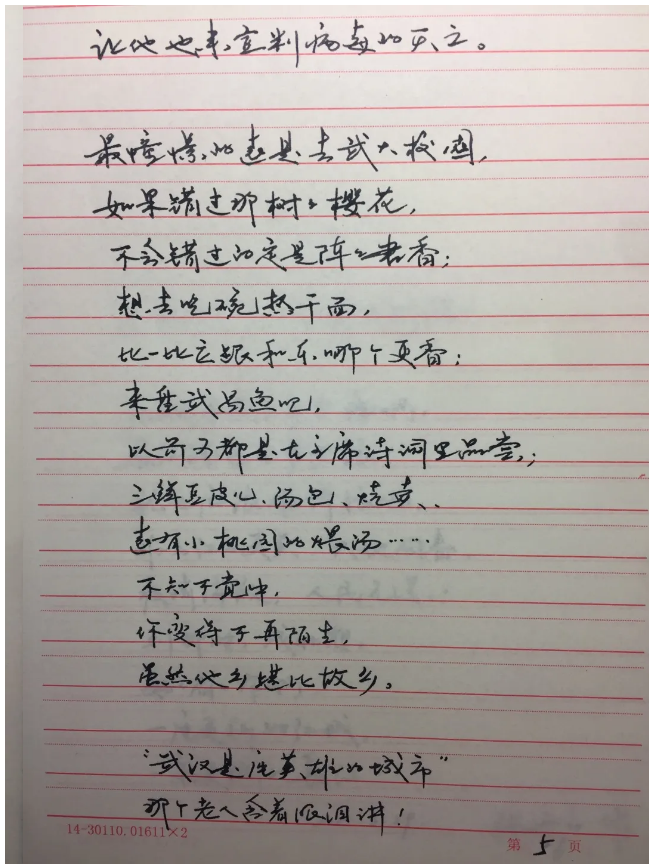 让他也来宣判病毒的灭亡。
最憧憬的还是去武大校园,
如果错过那树树樱花,
不会错过的定是阵阵书香;
想去吃碗热干面,
比一比它跟和乐哪个更香;
来盘武昌鱼吧,
以前可都是在主席诗词里品尝;
三鲜豆皮儿、汤包、烧卖、
还有小桃园的煨汤……
不知不觉中,
你变得不再陌生,
虽然他乡堪比故乡。
“武汉是座英雄的城市”
那个老人含着眼泪讲!
14-30110.01611×2
第 5 页